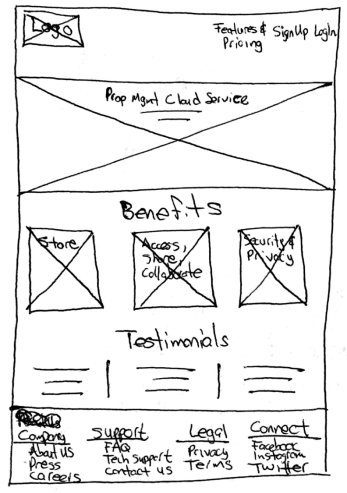 Logo
Features & SignUp LogIn
Pricing
Prop Mgmt Cloud Service
Benefits
Store
Access,
Share,
Collaborate
Security &
Privacy
Testimonials
Company
About US
Press
Careers
Support
FAQ
Tech Support
Contact US
Legal
Privacy
Terms
Connect
Facebook
Instagram
Twitter